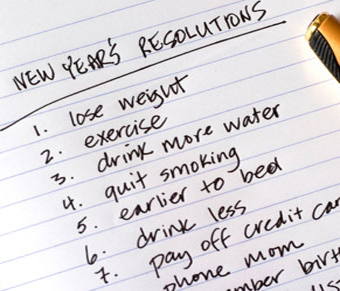 NEW YEAR'S RESOLUTIONS
1. lose weight
2. exercise
3. drink more water
4. quit smoking
5. earlier to bed
6. drink less
7. pay off credit
phone mom